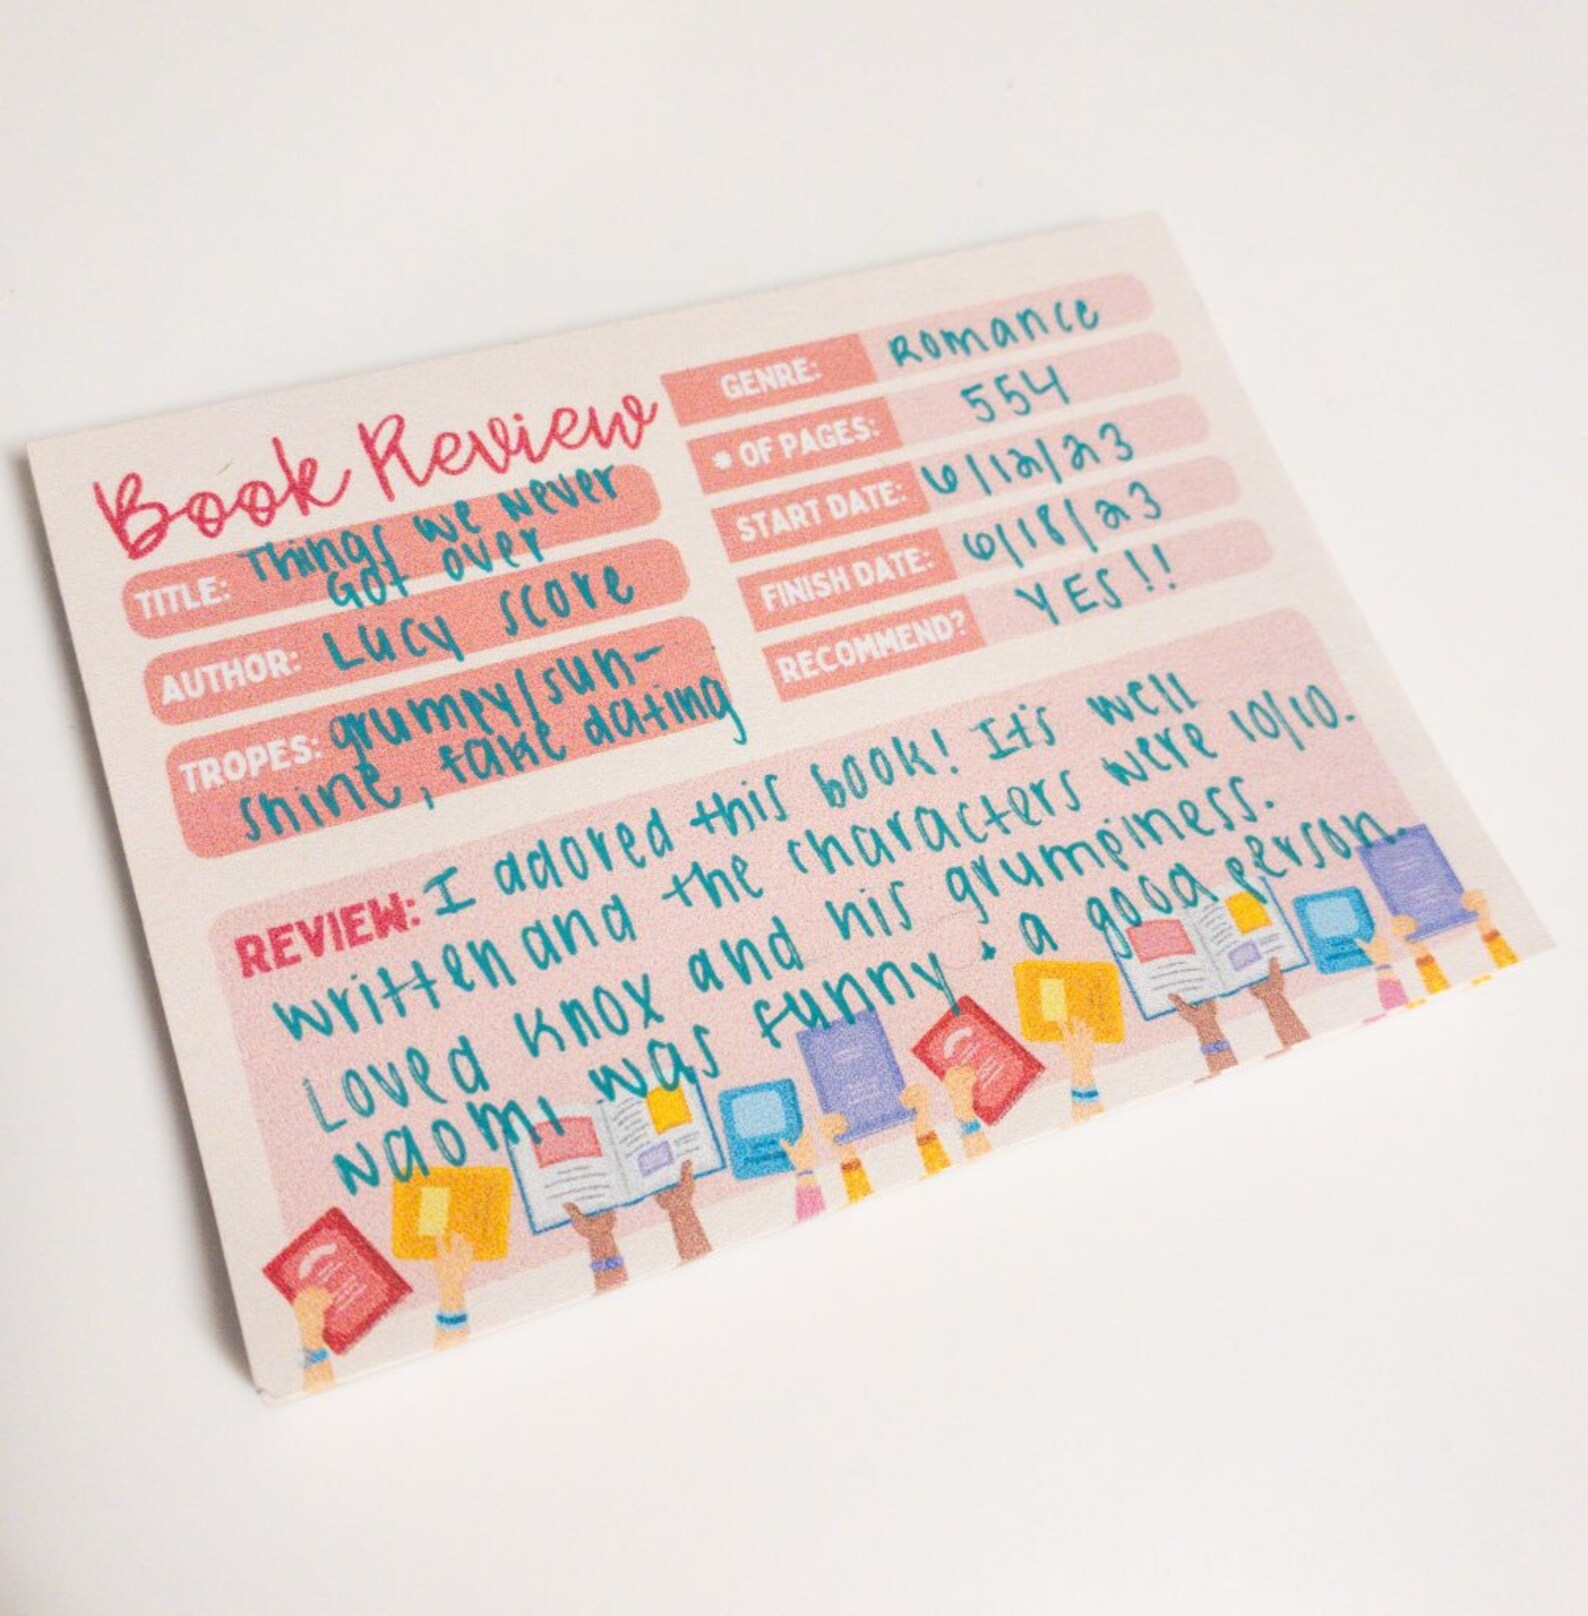 Book Review
TITLE: Things we Never
Got over
AUTHOR: Lucy score
TROPES: grumpy/sun-
shine, fake dating
GENRE: Romance
# OF PAGES: 554
START DATE: 6/12/23
FINISH DATE: 6/18/23
RECOMMEND? YES!!
REVIEW: I adored this book! It's well
written and the characters were 10/10.
Loved Knox and his grumpiness.
Naomi was funny + a good person.